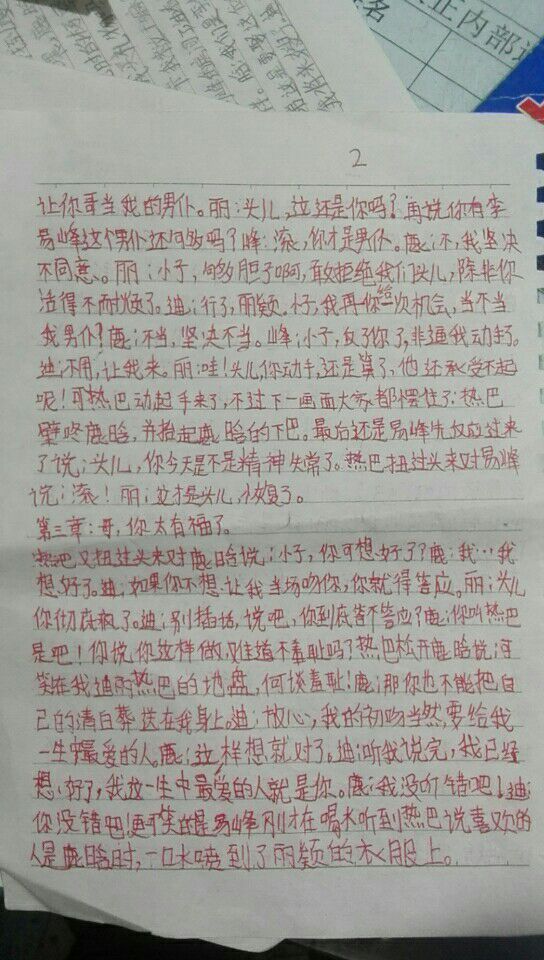 正内部
名
2
让你哥当我的男仆。丽:头儿,这还是你吗?再说你有李
易峰这个男仆还不够吗?峰:滚,你才是男仆。鹿:不,我坚决
不同意。丽:小子,够胆了啊,敢拒绝我们头儿,除非你
活得不耐烦了。迪:行了,丽颖。小子,我再给你一次机会,当不当
我男仆?鹿:不当,坚决不当。峰:小子,反了你了,非逼我动手。
迪:不用,让我来。丽:哇!头儿,你动手还是算了,他还承受不起
呢!可热巴动起手来了,不过下一画面大家都愣住了:热巴
壁咚鹿晗,并抬起鹿晗的下巴。最后还是易峰先反应过来
了说:头儿,你今天是不是精神失常了。热巴扭过头来对易峰
说:滚!丽:这才是头儿,恢复了。
第三章:哥,你太有福了。
热巴又扭过头来对鹿晗说:小子,你可想好了?鹿:我…我
想好了。迪:如果你不想让我当场吻你,你就得答应。丽:头儿
你彻底疯了。迪:别插话,说吧,你到底答不答应?鹿:你叫热巴
是吧!你说你这样做,难道不羞耻吗?热巴松开鹿晗说:可
笑在我迪丽热巴的地盘,何谈羞耻!鹿:那你也不能把自
己的清白葬送在我身上。迪:放心,我的初吻当然,要给我
一生中最爱的人。鹿:这样想就对了。迪:听我说完,我已经
想好了,我这一生中最爱的人就是你。鹿:我没听错吧!迪:
你没错吧!更可笑的是易峰刚才在喝水听到热巴说喜欢的
人是鹿晗时,一口水喷到了丽颖的衣服上。